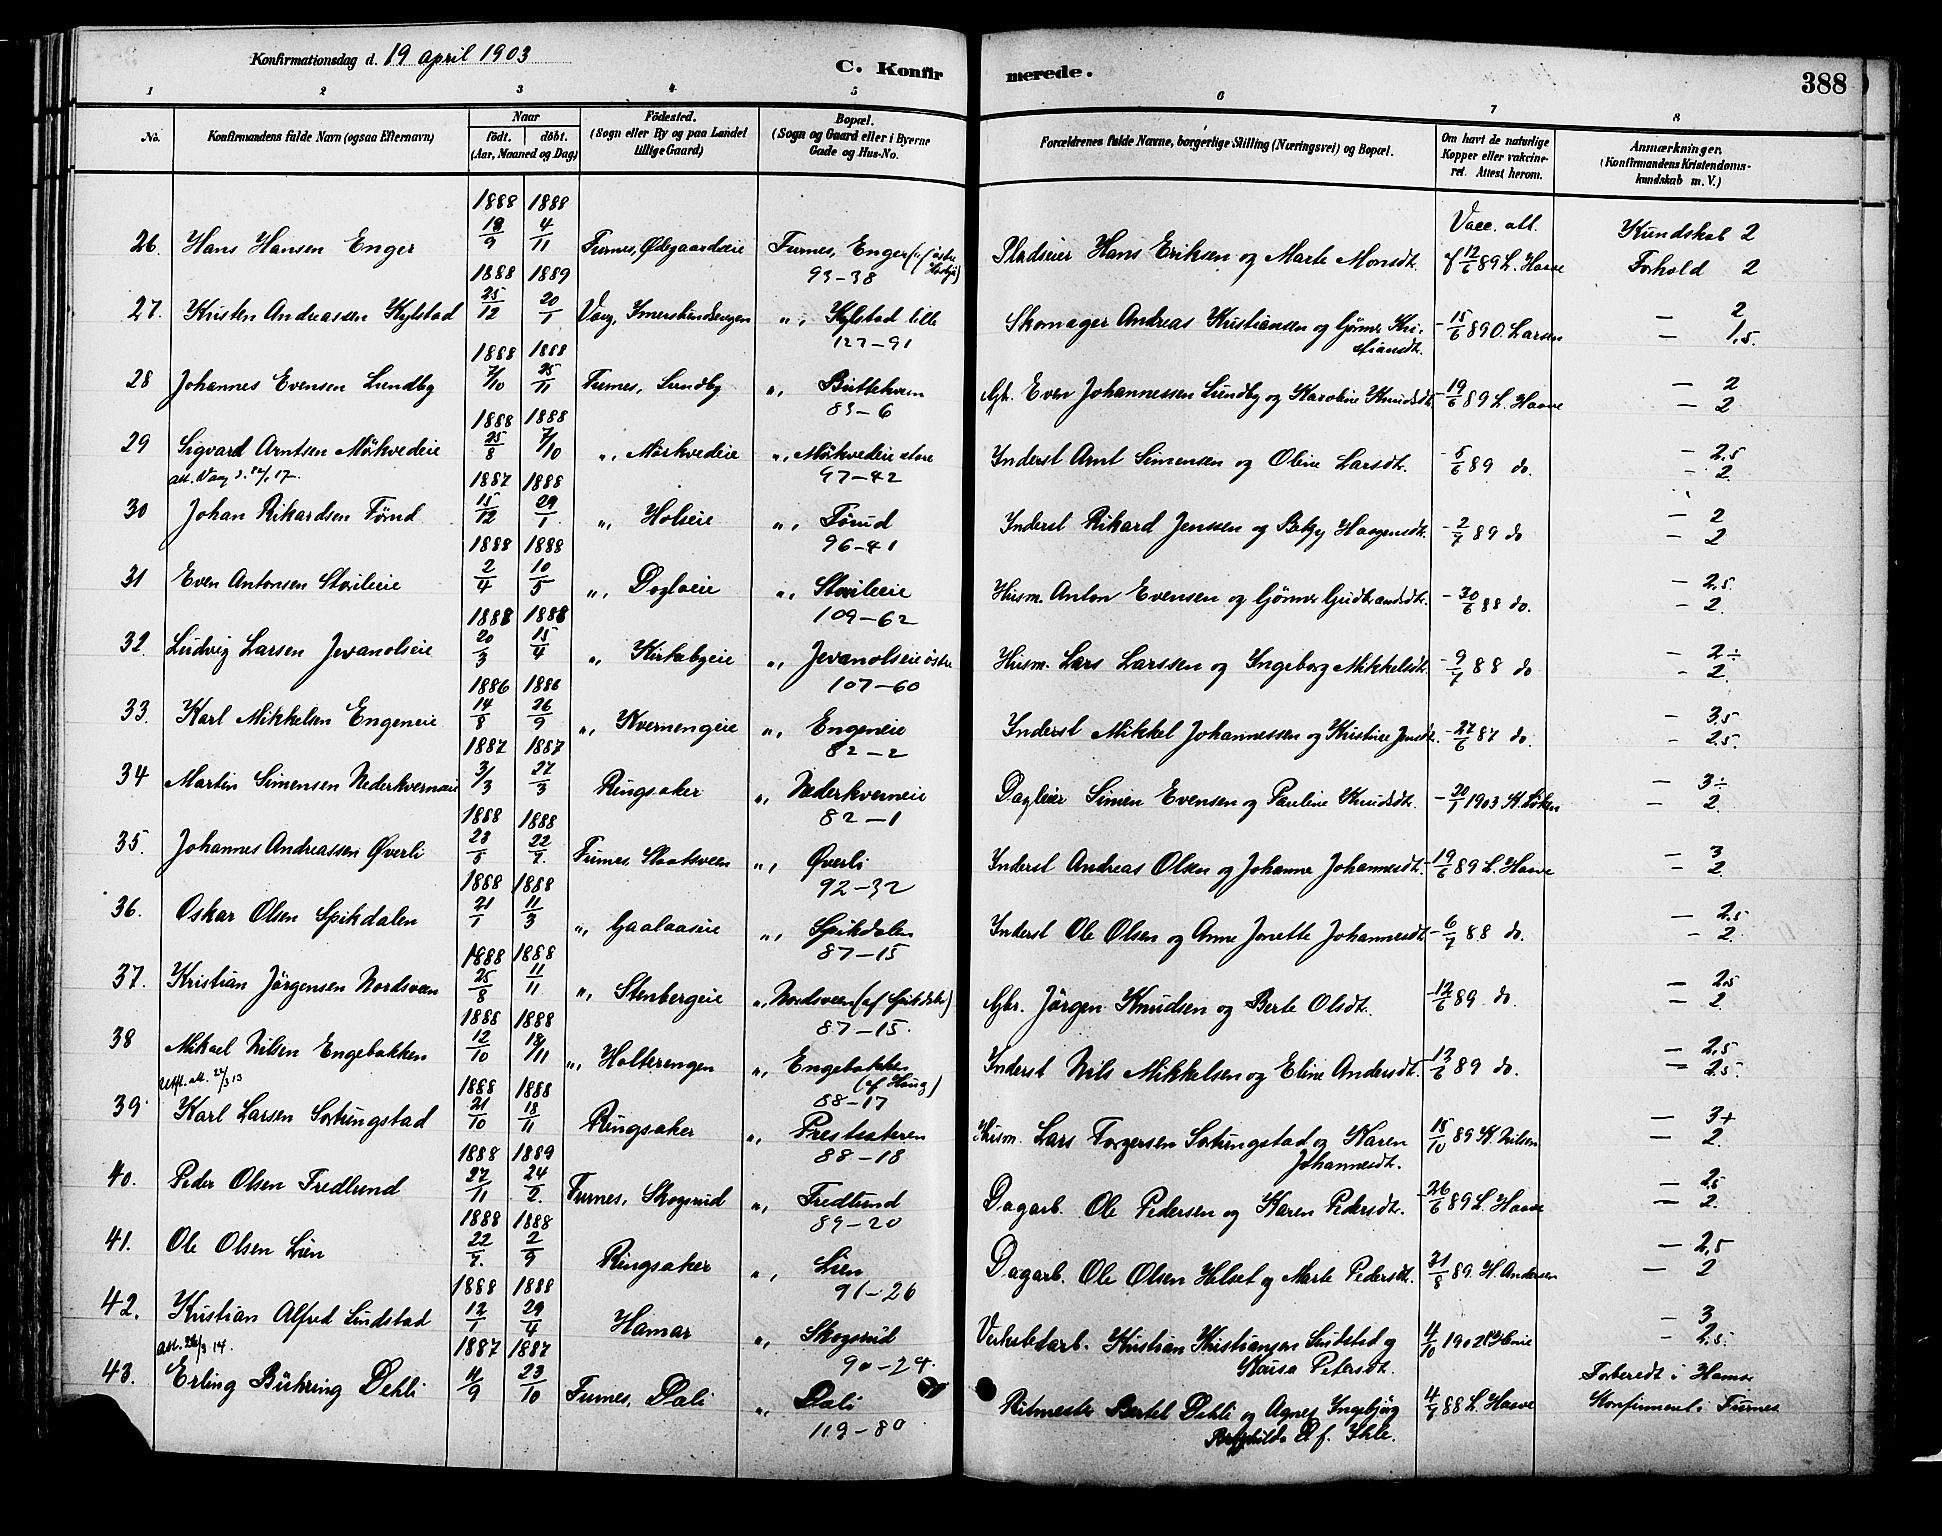 Konfirmationsdag d. 19 april 1903
C. Konfirmerede.
388
1 2 3 4 5 6 7 8
No.
Konfirmandens fulde Navn (ogsaa Efternavn)
Naar
födt. döbt.
(Aar, Maaned og Dag)
Födested.
(Sogn eller By og paa Landet
tillige Gaard)
Bopæl.
(Sogn og Gaard eller i Byerne
Gade og Hus-No.
Forældrenes fulde Navne, borgerlige Stilling (Næringsvei) og Bopæl.
Om havt de naturlige
Kopper eller vakcine-
ret. Attest herom.
Anmærkninger.
(Konfirmandens Kristendoms-
kundskab m. V.)
1888 1888 Vacc. att. Kundskab 2
26. Hans Hansen Enger 19/9 4/11 Furnes, Ødegaardseie Furnes, Enger Pladseier Hans Eriksen og Marte Monsdt. 12/6 89 L. Haave Forhold 2
93-38
1888 1889
27. Kristen Andreassen Kylstad 25/12 20/1 Vang, Imerslundengen " Kylstad lille Skomager Andreas Kristiansen og Gjönner Kri- 15/6 89 O. Larsen — 2
127-91 stiansdt. — 1,5.
1888 1888
28 Johannes Evensen Lundby 7/10 25/11 Furnes, Lundby " Buttekvern Gbr. Even Johannessen Lundby og Karoline Knudsdt. 19/6 89 L. Haave — 2
83-6 — 2
1888 1888
29 Sigvard Arntsen Mörkvedeie 25/8 7/10 " Mörkvedeie " Mörkvedeie store Inderst Arnt Simensen og Oline Larsdt. 5/6 89 do. — 2,5
97-42 - 2.
1887 1888
30 Johan Rikardsen Törud 15/12 29/1 " Holseie " Törud Inderst Rikard Jenssen og Betzy Haagensdt. 2/7 89 do — 2
96-41 — 2
1888 1888
31 Even Antonsen Stovileie 2/4 10/5 " Dogloeie " Stovileie Husm. Anton Evensen og Gjönner Gudbrandsdt. 30/6 88 do. — 2,5
109-62 — 2.
1888 1888
32. Ludvig Larsen Jevanolseie 20/3 15/4 " Kirkebyeie " Jevanolseie östre Husm. Lars Larssen og Ingeborg Mikkelsdt. 9/7 88 do — 2÷
107-60 — 2.
1886 1886
33. Karl Mikkelsen Engeneie 14/8 26/9 " Kvernengeie " Engeneie Inderst Mikkel Johannessen og Kristine Jensdt. 27/6 87 do. — 3,5
82-2 - 2.5.
1887 1887
34 Martin Simensen Nederkverneie 3/3 27/3 Ringsaker " Nederkverneie Dagleier Simen Evensen og Pauline Knudsdt. 20/1 1903 K. Löken — 3÷
82-1 — 2.
1888 1888
35. Johannes Andreassen Øverli 23/5 22/7. Furnes, Staaksveen " Øverli Inderst Andreas Olsen og Johanne Johannesdt. 19/6 89 L. Haave — 3
92-32 — 2.
1888 1888
36. Oskar Olsen Spikdalen 21/1 11/3 " Gaalaaseie " Spikdalen Inderst Ole Olsen og Anne Jonette Johannesdt. 6/7 88 do. — 2,5
87-15 - 2.
1888 1888
37. Kristian Jörgensen Nordsveen 25/8 11/11 " Stenbergeie " Nordsveen (af Spikdalen) Gbr. Jörgen Knudsen og Berte Olsdt. 12/6 89 do. — 2,5
87-15. — 2
1888 1888
38 Mikael Nilsen Engebakken 12/10 18/11 " Holterengen " Engebakken Inderst Nils Mikkelsen og Eline Andersdt. 12/6 89 do. — 2,5
(af Haug) — 2.5.
88-17
1888 1888
39 Karl Larsen Sörlungstad 21/10 18/11 Ringsaker " Prestsæteren Husm. Lars Torgersen Sörlungstad og Karen 15/10 89 K. Nilsen — 3+
88-18 Johannesdt. — 2.
1888 1889
40. Peder Olsen Fredlund 27/11 24/2. Furnes, Skogsrud " Fredlund Dagarb. Ole Pedersen og Karen Pedersdt. 26/6 89 L. Haave — 2,5
89-20 — 2.
1888 1888
41. Ole Olsen Lien 22/7. 2/9 Ringsaker " Lien Dagarb. Ole Olsen Helset og Marte Pedersdt. 31/8 89. H. Andersen — 2,5
91-26 — 2
1888 1888
42. Kristian Alfred Lindstad 12/1 29/4 Hamar " Skogsrud Verkstedarb. Kristian Kristiansen Lindstad og 4/10 1902 — 3
90-24. Petersdt. — 2,5.
1887 1887
43. Erling Bühring Dehli 11/9 23/10 Furnes, Dæli " Dæli Ritmester Bertel Dehli og Agnes Ingebjörg 4/7 88 L. Haave Forberedt i Hamar
119-80 f. Ihle. Konfirmeret i Furnes